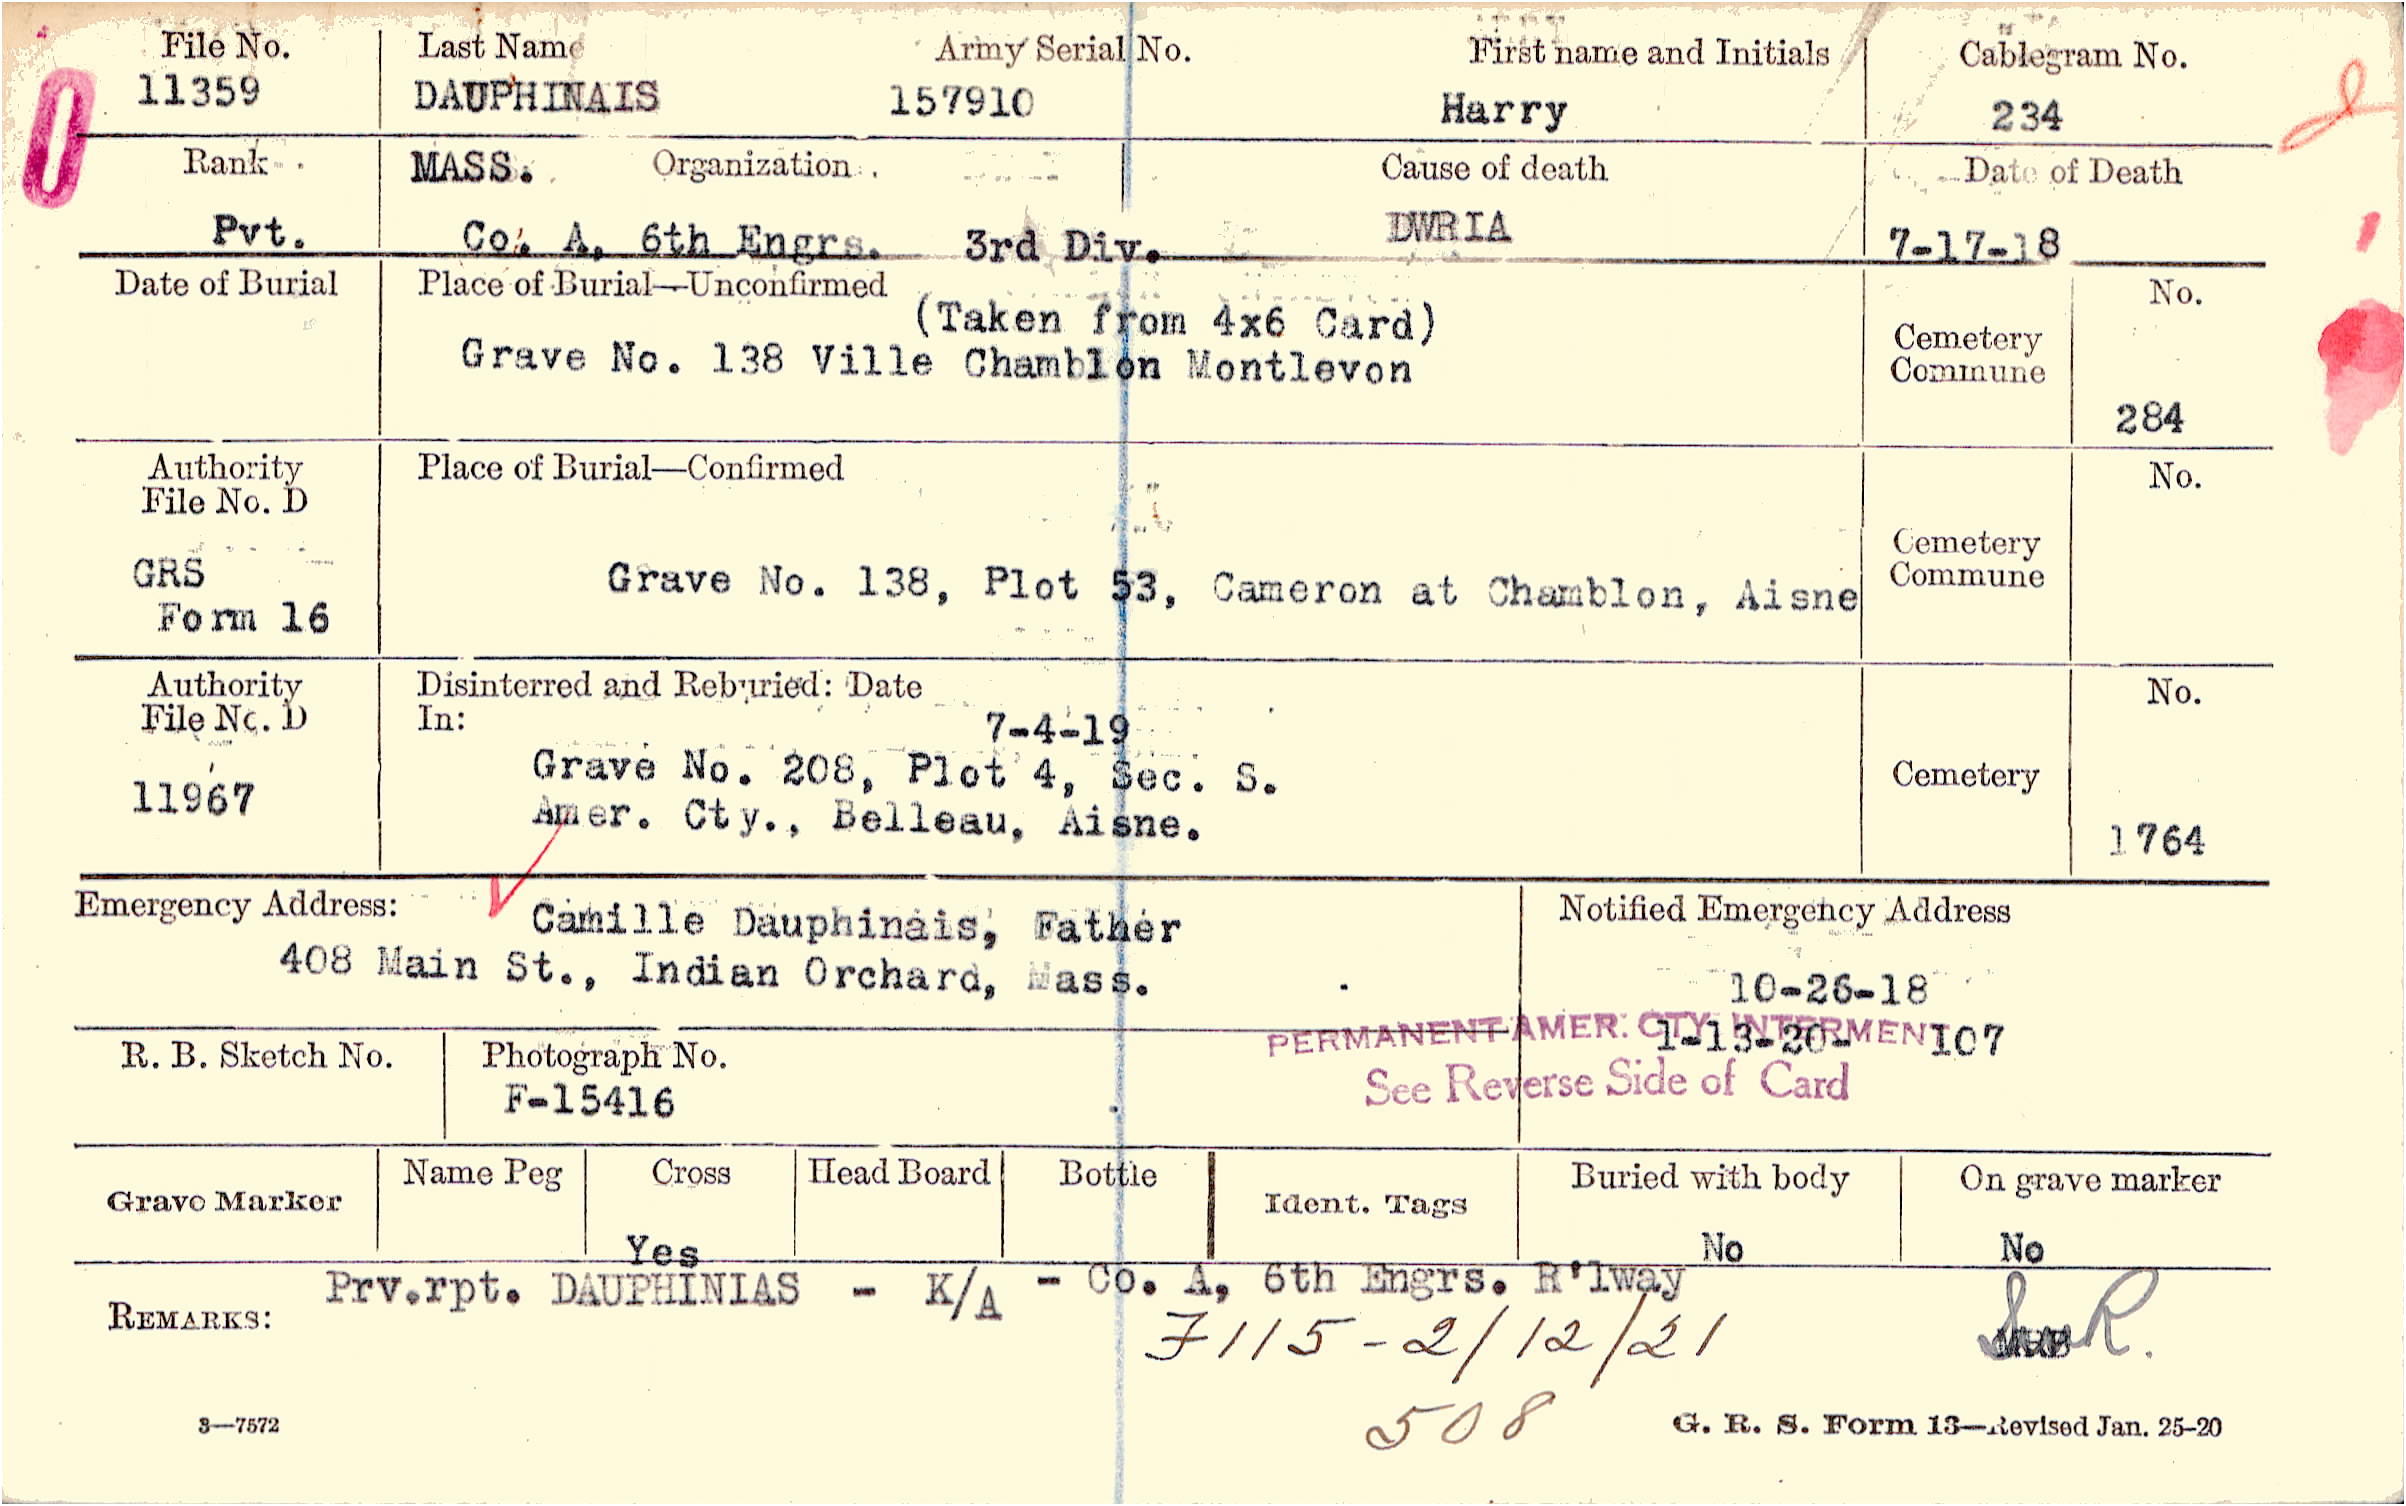 File No. Last Name Army Serial No. First name and Initials Cablegram No.
11359 DAUPHINAIS 157910 Harry 234
Rank MASS. Organization Cause of death Date of Death
Pvt. Co. A, 6th Engrs. 3rd Div. DWRIA 7-17-18
Date of Burial Place of Burial—Unconfirmed No.
(Taken from 4x6 Card)
Grave No. 138 Ville Chamblon Montlevon
Cemetery
Commune
284
Authority Place of Burial—Confirmed No.
File No. D
GRS
Form 16
Grave No. 138, Plot 53, Cameron at Chamblon, Aisne
Cemetery
Commune
Authority Disinterred and Reburied: Date No.
File No. D In: 7-4-19
Grave No. 208, Plot 4, Sec. S.
11967 Amer. Cty., Belleau, Aisne.
Cemetery
1764
Emergency Address: Camille Dauphinais, Father
408 Main St., Indian Orchard, Mass.
Notified Emergency Address
10-26-18
1-13-20- 107
PERMANENT AMER. CTY. INTERMENT
See Reverse Side of Card
R. B. Sketch No. Photograph No.
F-15416
Grave Marker Name Peg Cross Head Board Bottle Ident. Tags Buried with body On grave marker
Yes No No
REMARKS: Prv.rpt. DAUPHINIAS - K/A - Co. A, 6th Engrs. R'lway
F115-2/12/21
508
3—7572 G. R. S. Form 13—Revised Jan. 25-20